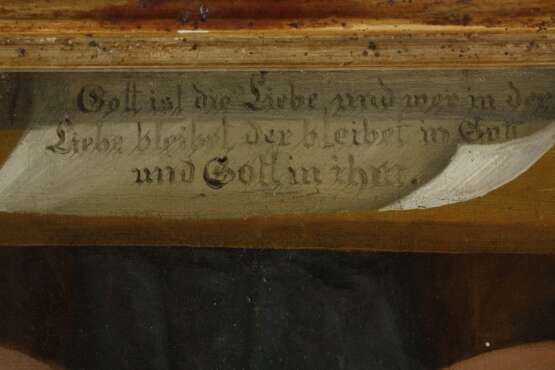 Gott ist die Liebe, und wer in der
Liebe bleibet der bleibet in Gott
und Gott in ihm.